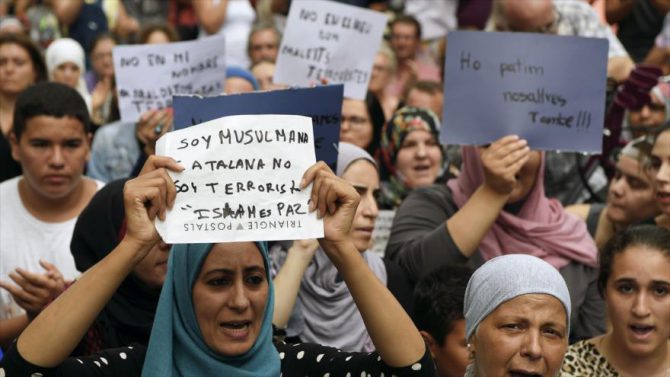 NO EN MI
NOMBRE
NO EN CREU
MALEITS
TERRORISTES
Ho patim
nosaltres
També!!!
SOY MUSULMANA
CATALANA NO
SOY TERRORISTA
"ISLAM ES PAZ
TRIANGLE POSTALS